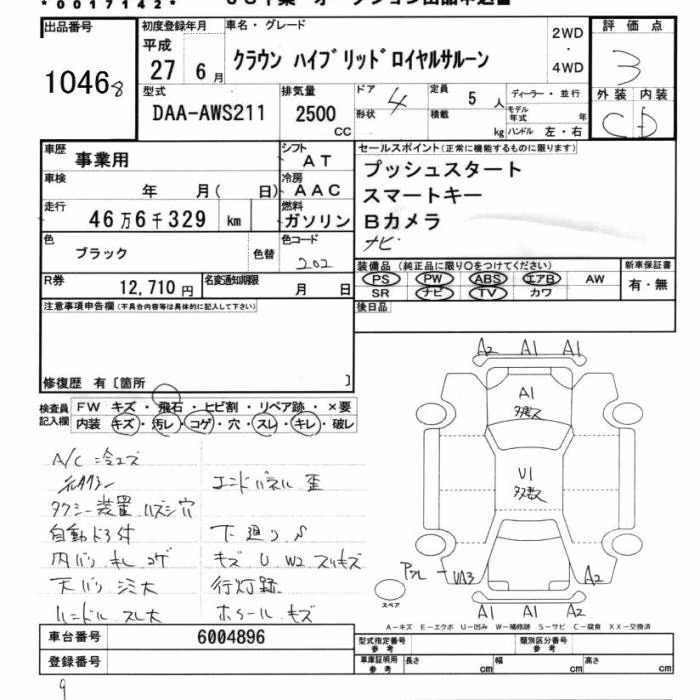 *0017142*
出品番号
10468
初度登録年月
平成
27 6月
車名・グレード
クラウン ハイブリッドロイヤルサルーン
2WD
・
4WD
評価点
3
型式
DAA-AWS211
排気量
2500
CC
ドア
4
形状
定員
5 人
積載
kg
ディーラー・並行
モデル年式 年
ハンドル 左・右
外装 内装
C D
車歴
事業用
シフト
AT
車検
年 月( 日)
冷房
AAC
走行
46万6千329 km
燃料
ガソリン
色
ブラック
色替
色コード
202
R券
12,710円
名変通知期限
月 日
セールスポイント(正常に機能するものに限ります)
プッシュスタート
スマートキー
Bカメラ
ナビ
装備品 (純正品に限り○をつけてください)
PS PW ABS エアB AW
SR ナビ TV カワ
新車保証書
有・無
後日品
注意事項申告欄(不具合内容等は具体的に記入して下さい)
修復歴 有〔箇所 〕
検査員記入欄
FW キズ・飛石・ヒビ割・リペア跡・×要
内装 キズ・汚レ・コゲ・穴・スレ・キレ・破レ
A/C
タクシー装置 ハズシ穴
自動ドア付
内バリ キレ コゲ
天バリ シミ大
ハンドル スレ大
エンドパネル 歪
下廻り
キズ U W2 スリキズ
行灯跡
ホイール キズ
A2 A1 A1
A1
多数
U1
多数
UA3
A2
A1 A1 A2
スペア
A-キズ E-エクボ U-凹み W-補修跡 S-サビ C-腐食 XX-交換済
車台番号
6004896
登録番号
型式指定番号
参考
類別区分番号
参考
車庫証明用
参考
長さ cm
幅 cm
高さ cm
9